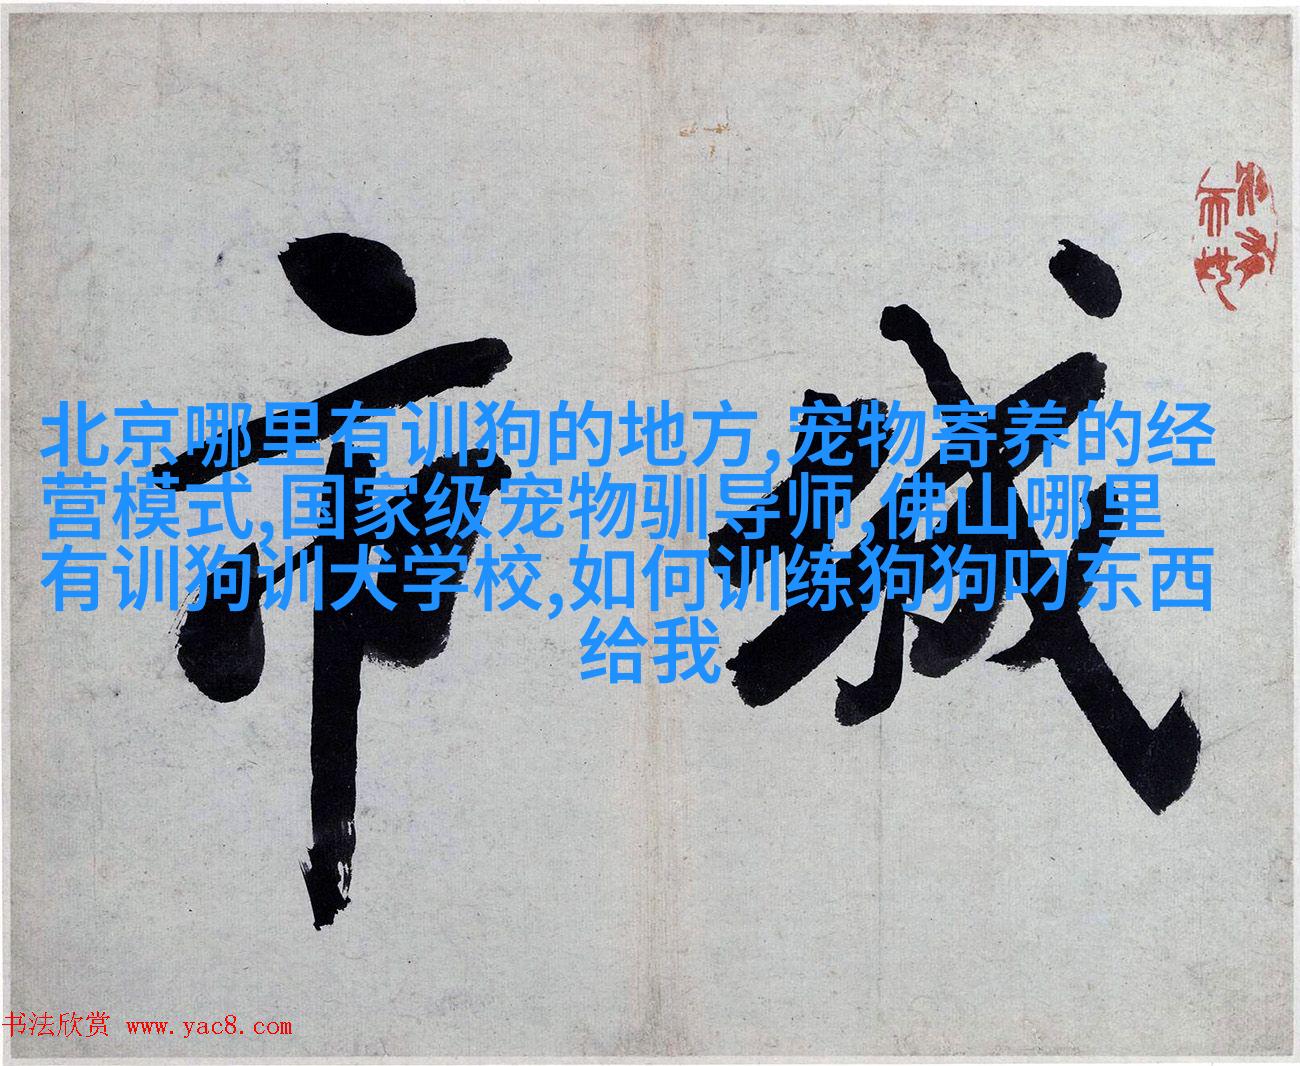 城市
北京哪里有训狗的地方,宠物寄养的经
营模式,国家级宠物驯导师,佛山哪里
有训狗训犬学校,如何训练狗狗叼东西
给我
书法欣赏 www.yac8.com